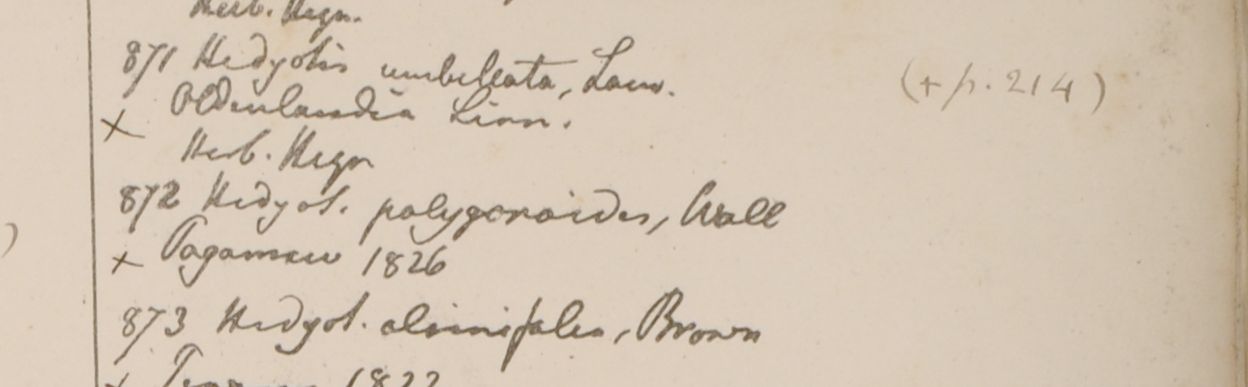 Herb. Heyn.
871 Hedyotis umbellata, Lam. (+ p. 214)
Oldenlandia Linn.
x
Herb. Heyn
872 Hedyot. polygonoides, Wall
x 1826
873 Hedyot. , Brown
x 1822